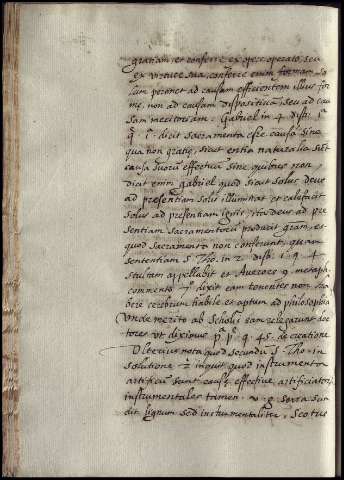 gratiam, et conferre ex opere operato, seu
ex virtute sua, conferre enim formam so
lum pertinet ad causam efficientem illius for
me, non ad causam dispositivā, seu ad cau
sam meritoriam. Gabriel in 4 dist. 1ᵃ
q. 1ᵃ dicit sacramenta esse causā sine
qua non gratie, sicut entia naturalia sūt
causa suorū effectuū sine quibus non
dicit enim gabriel quod sicut solus deus
ad presentiam solis illuminat et calefacit
solus ad presentiam ignis, ita deus ad pre
sentiam sacramentorū producit gram, et
quod sacramenta non conferunt, quam
sententiam S Tho. in 2 dist. 1 q. 4
stultam appellabit et Averoes 9 metaph.
commento 7 dixit eam tenentes non ha
bere cerebrum habile et aptum ad philosophia
Unde merito ab scholis eam relegarunt doc
tores ut diximus pᵃ pᵉ q. 45 de creatione
Ulterius nota quod secundū S Tho. in
solutione 2 inquit quod instrumenta
artificū sunt causę effective artificiatorū
instrumentales tamen v. g. serra scin
dit lignum sed instrumentaliter, Scotus